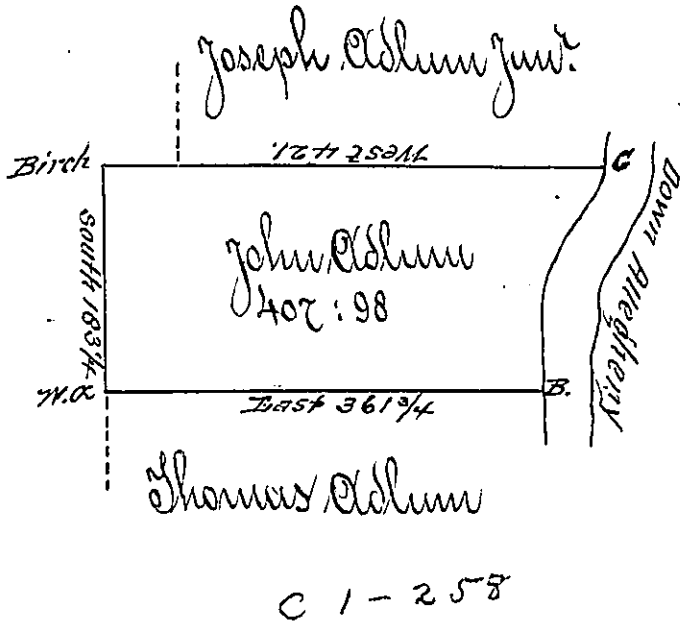 Joseph Adlum Junr.
West 421.
Birch
C
Down Allegheny
South 183 1/4
John Adlum
407 : 98
W.O
East 361 3/4
B.
Thomas Adlum
C 1 - 258